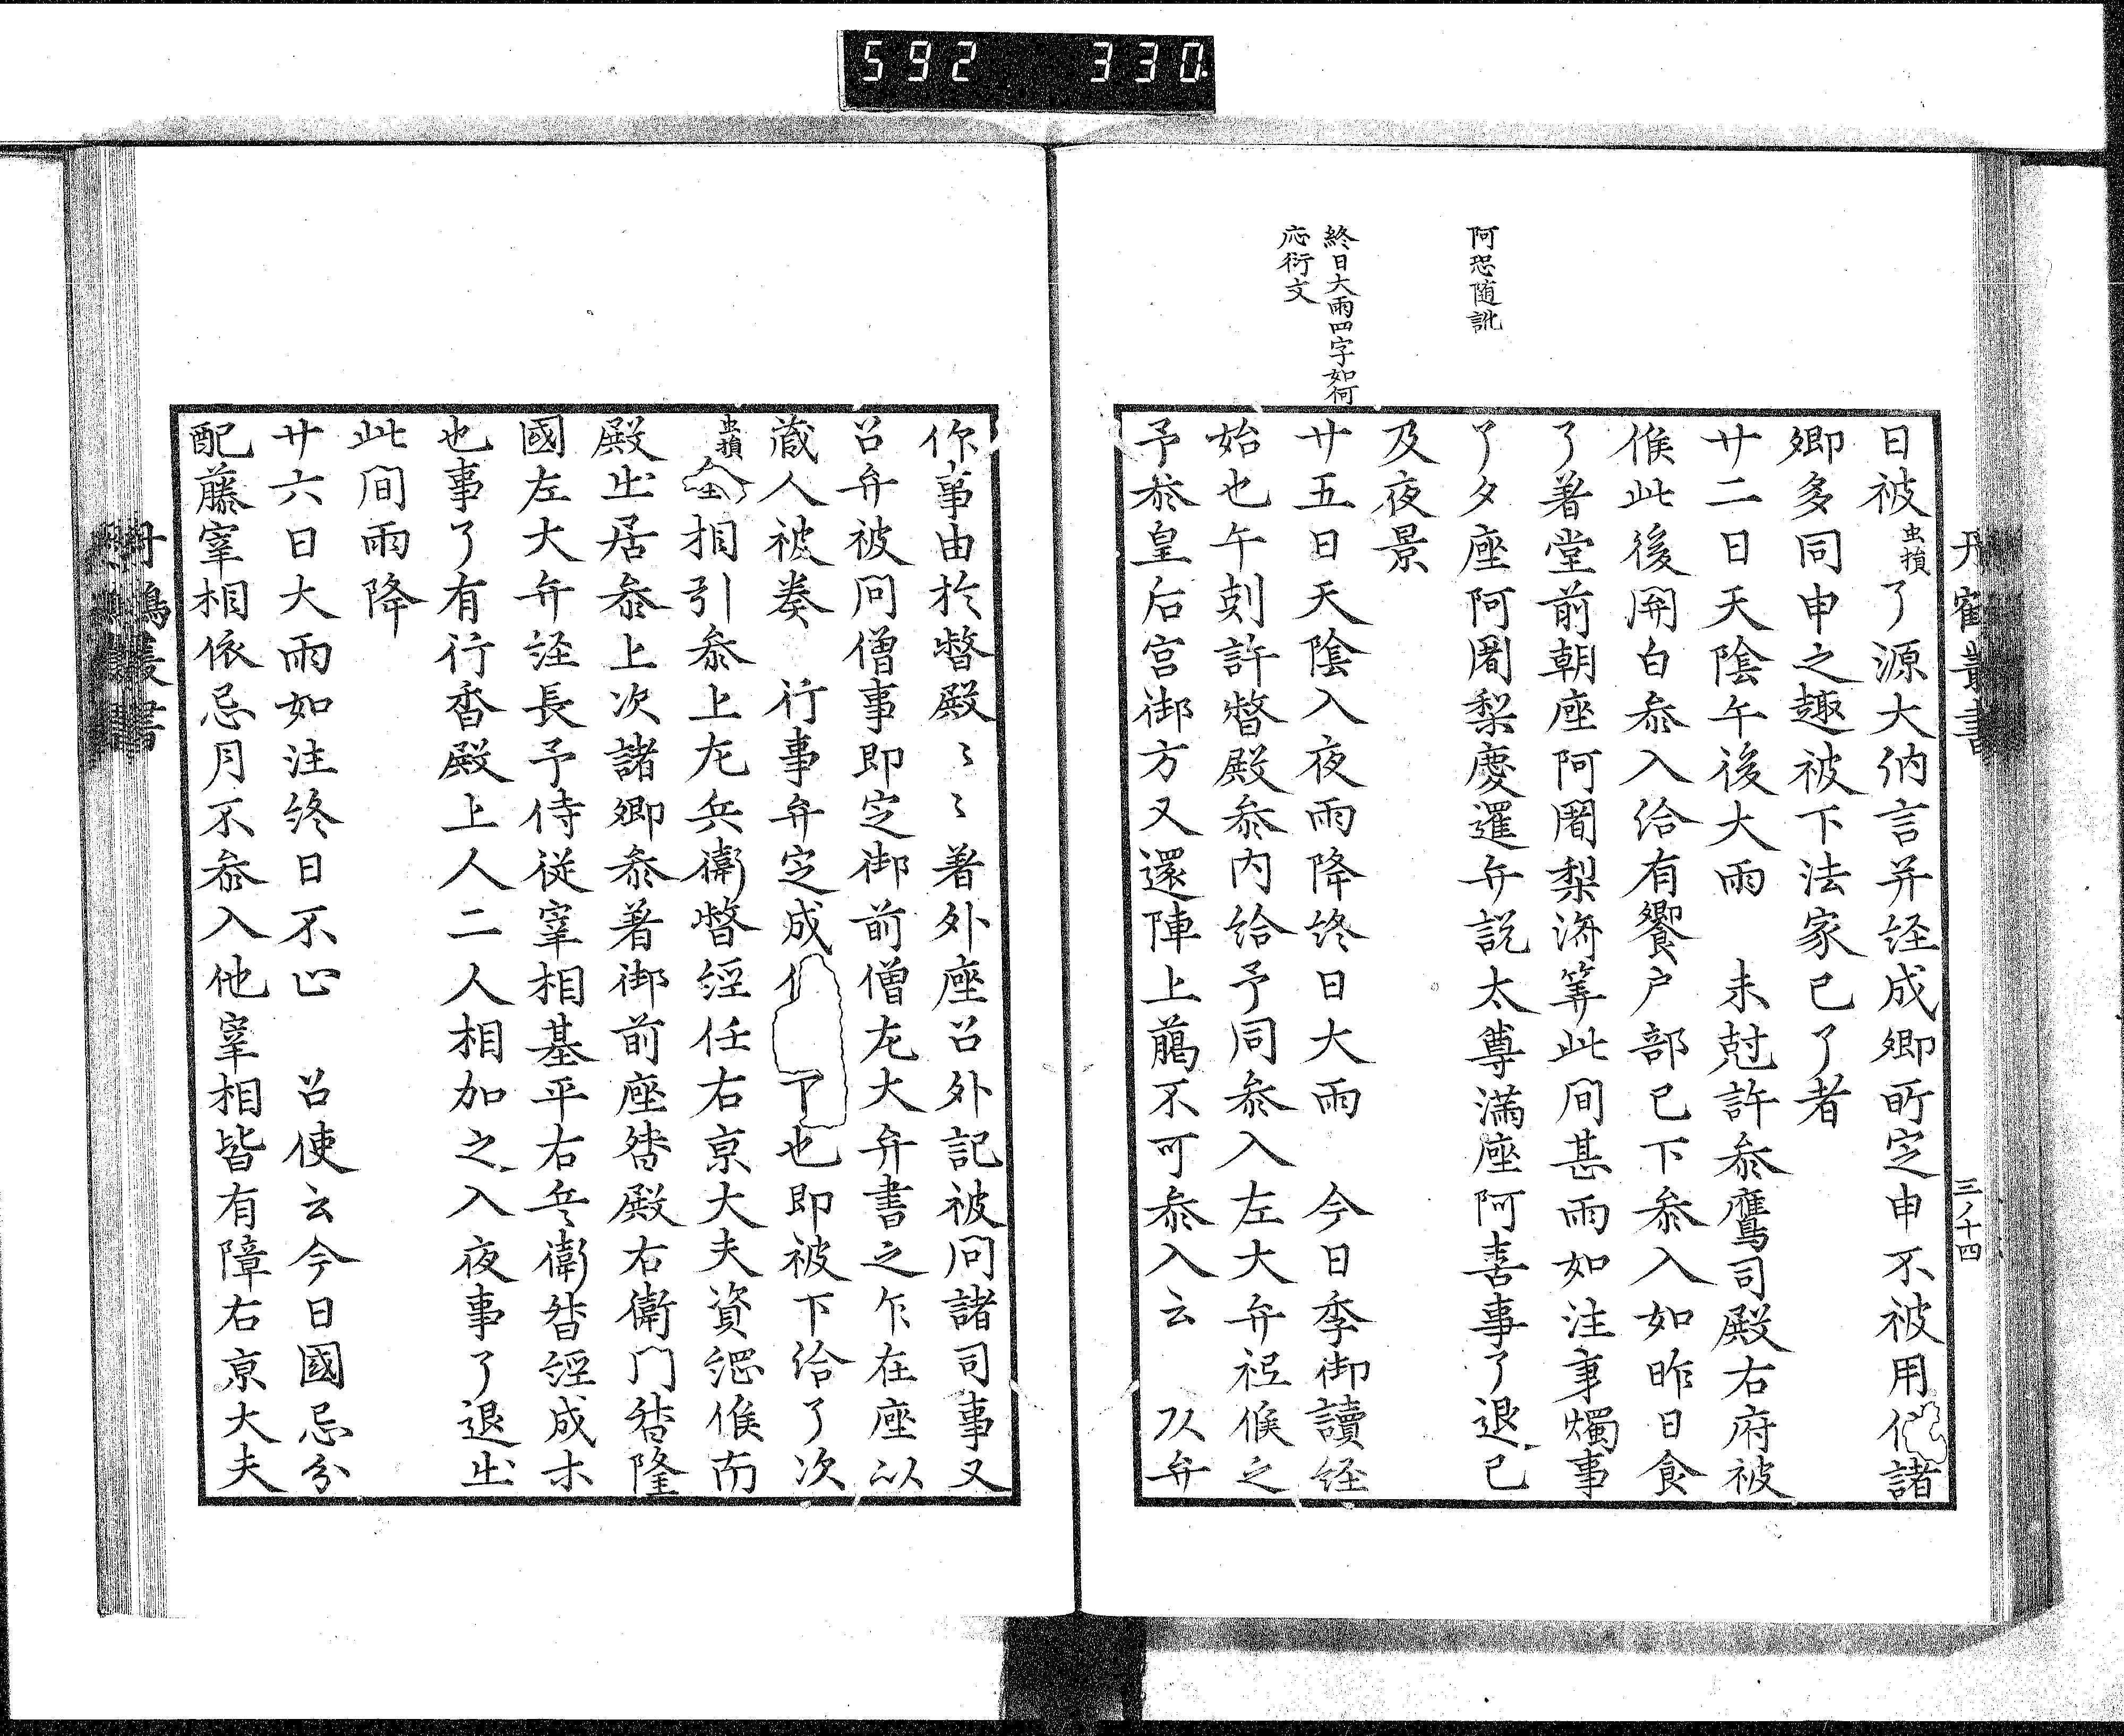 592 330
丹鶴叢書
三ノ十四
阿恐随訛
終日大雨四字如何
応衍文
日被虫損了源大納言并経成卿所定申不被用仍諸
卿多同申之趣被下法家已了者
廿二日天陰午後大雨 未尅許参鷹司殿右府被
候此後関白参入給有饗戸部已下参入如昨日食
了著堂前朝座阿闍梨済筭此間甚雨如注秉燭事
了夕座阿闍梨慶暹弁説太尊満座阿喜事了退已
及夜景
廿五日天陰入夜雨降終日大雨 今日季御読経
始也午剋許督殿参内給予同参入左大弁祗候之
予参皇后宮御方又還陣上萵不可参入云 以弁
作事由於督殿〻〻著外座召外記被問諸司事又
召弁被問僧事即定御前僧左大弁書之乍在座以
蔵人被奏 行事弁定成 了也即被下給了次
虫損 相引参上左兵衛督経任右京大夫資 候南
殿出居参上次諸卿参著御前座督殿右衛門督隆
國左大弁経長予侍従宰相基平右兵衛督経成朩
也事了有行香殿上人二人相加之入夜事了退出
此間雨降
廿六日大雨如注終日不止 召使云今日國忌分
配藤宰相依忌月不参入他宰相皆有障右京大夫
丹鶴叢書